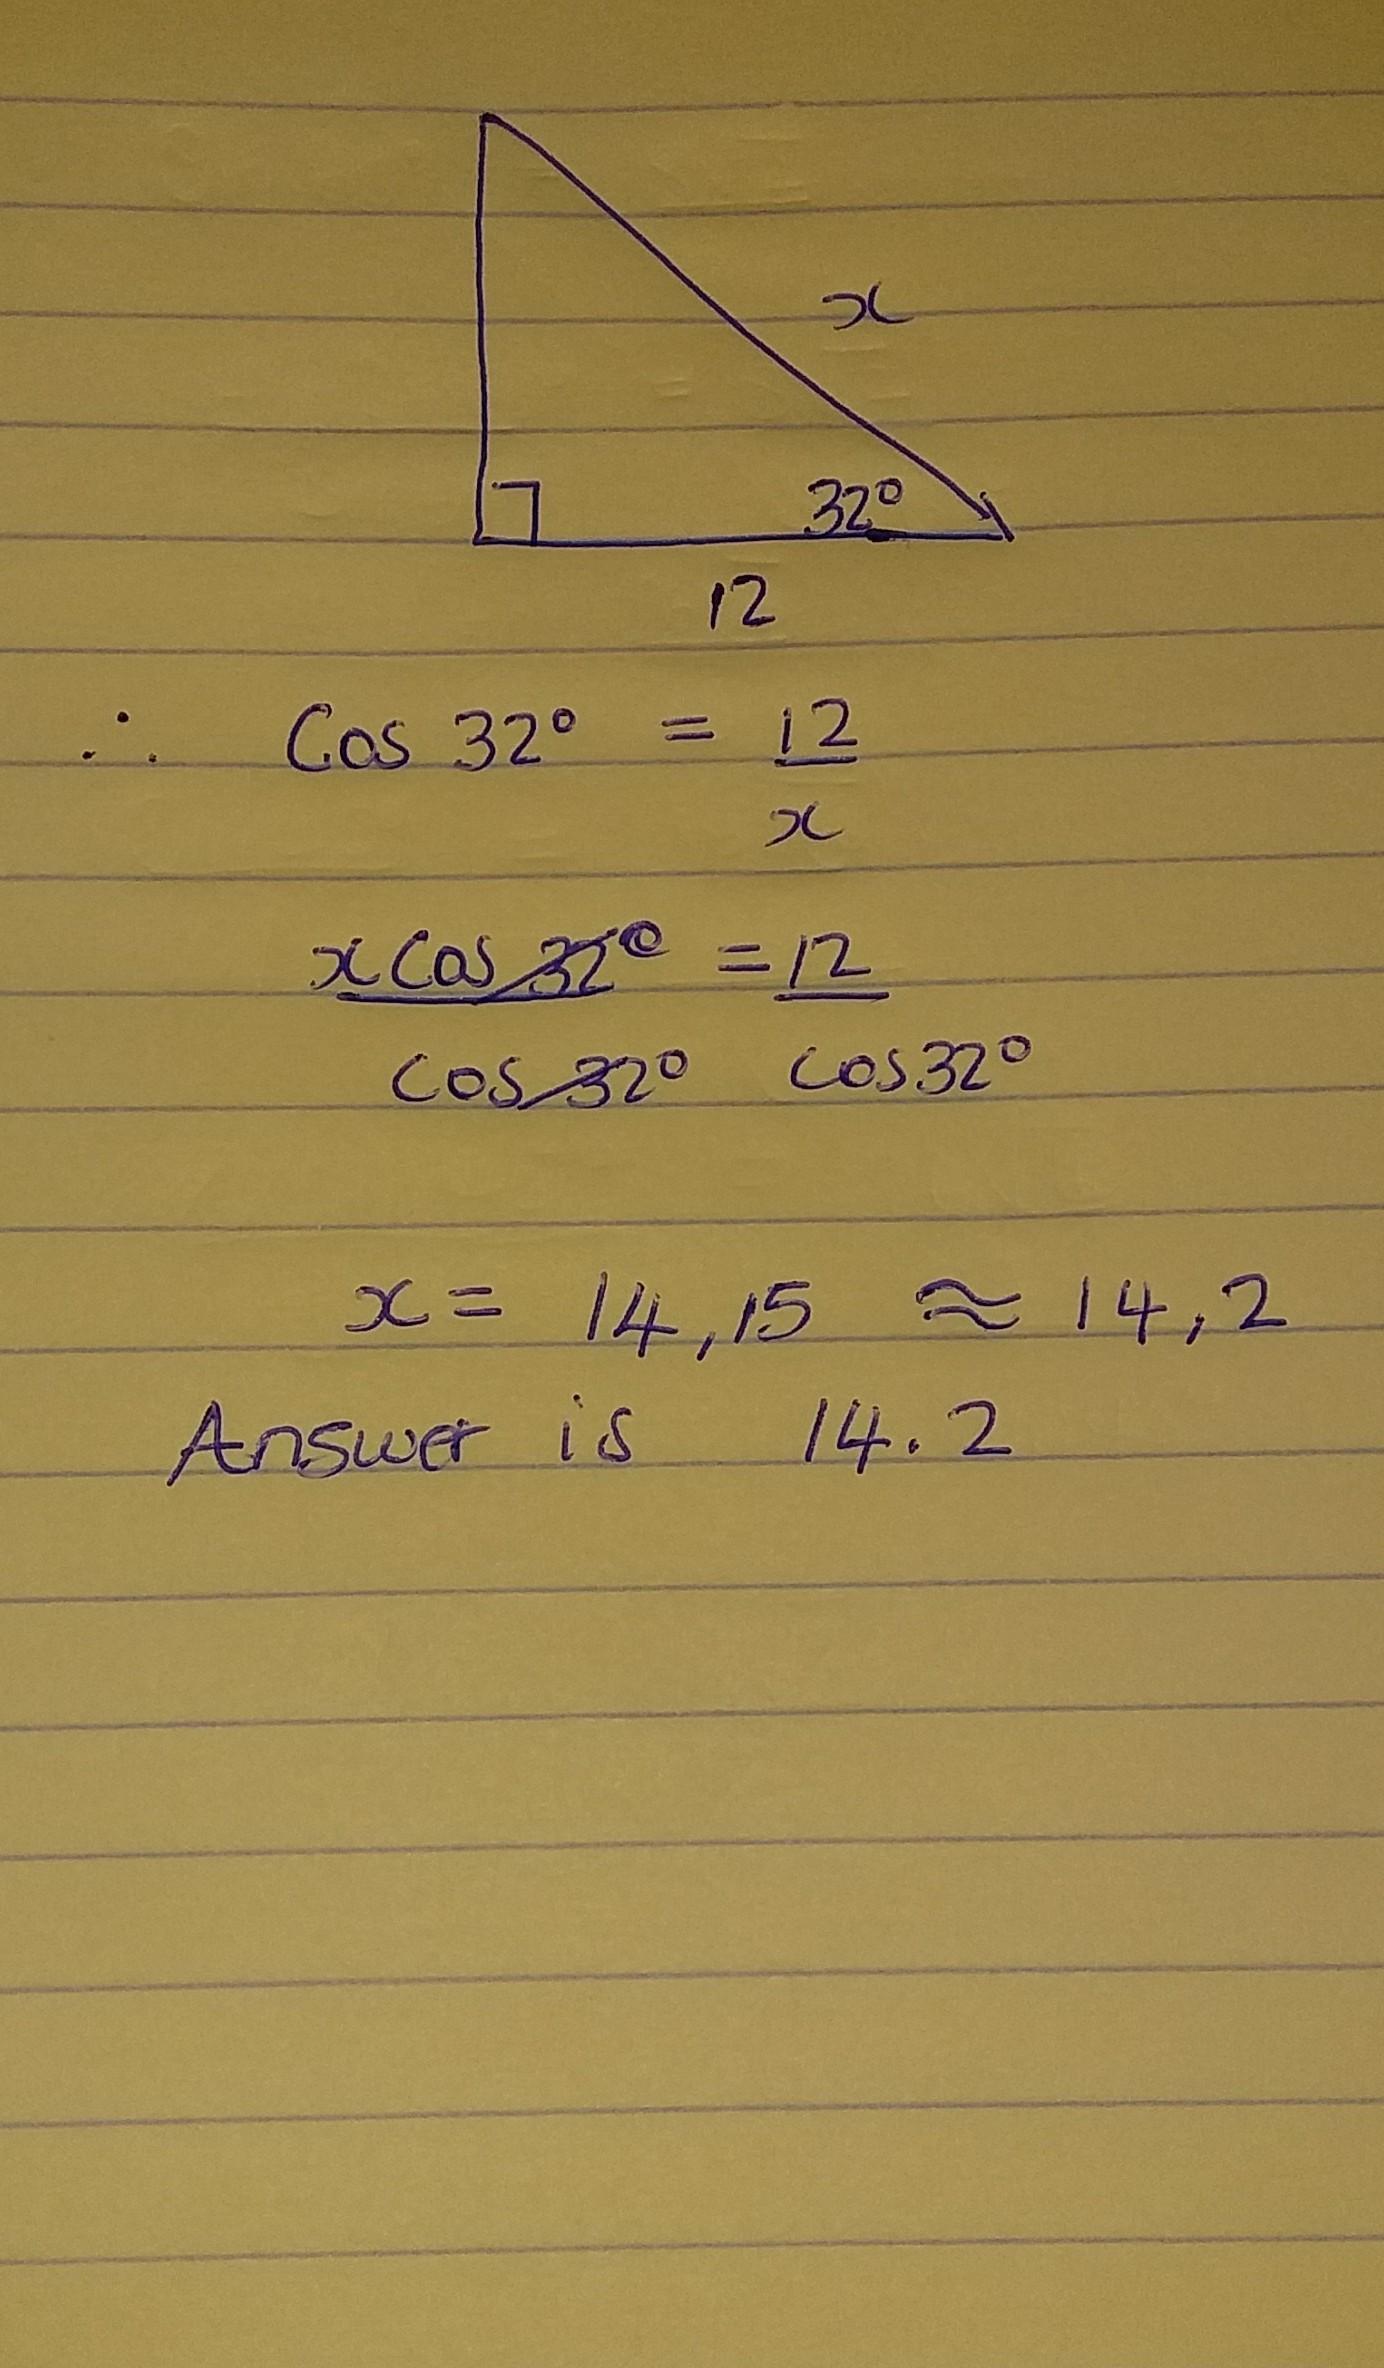 x
32°
12
∴ Cos 32° = 12
x
x Cos 32° = 12
Cos 32° cos 32°
x = 14,15 ≈ 14,2
Answer is 14.2